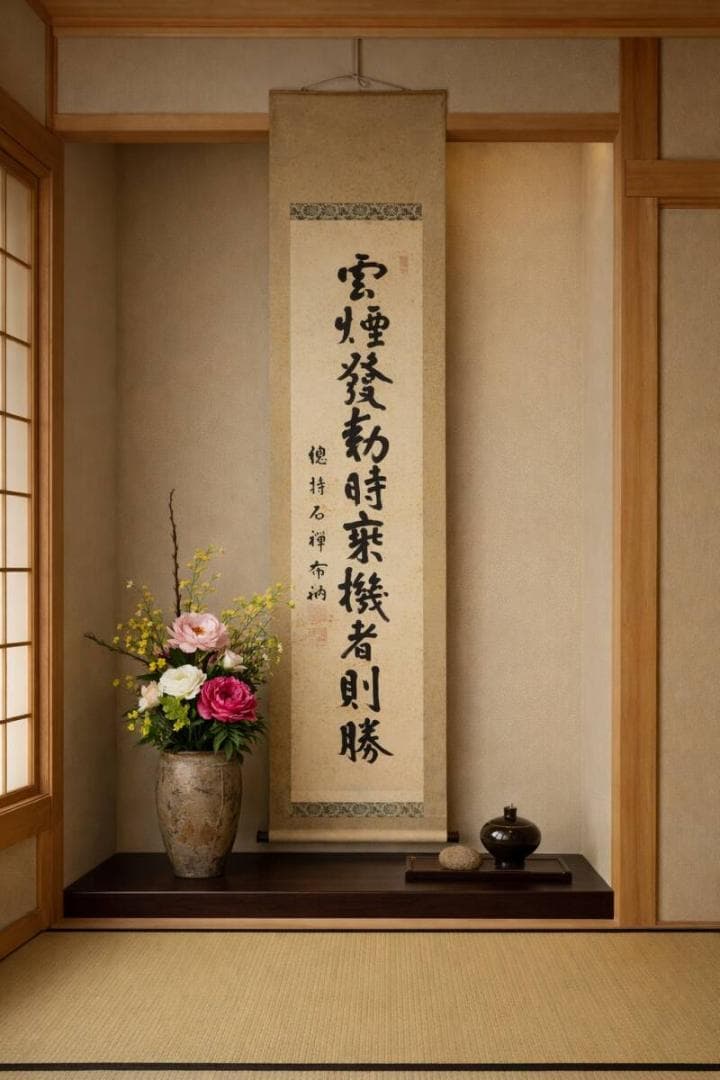 雲煙發動時乘機者則勝
總持石禪布衲